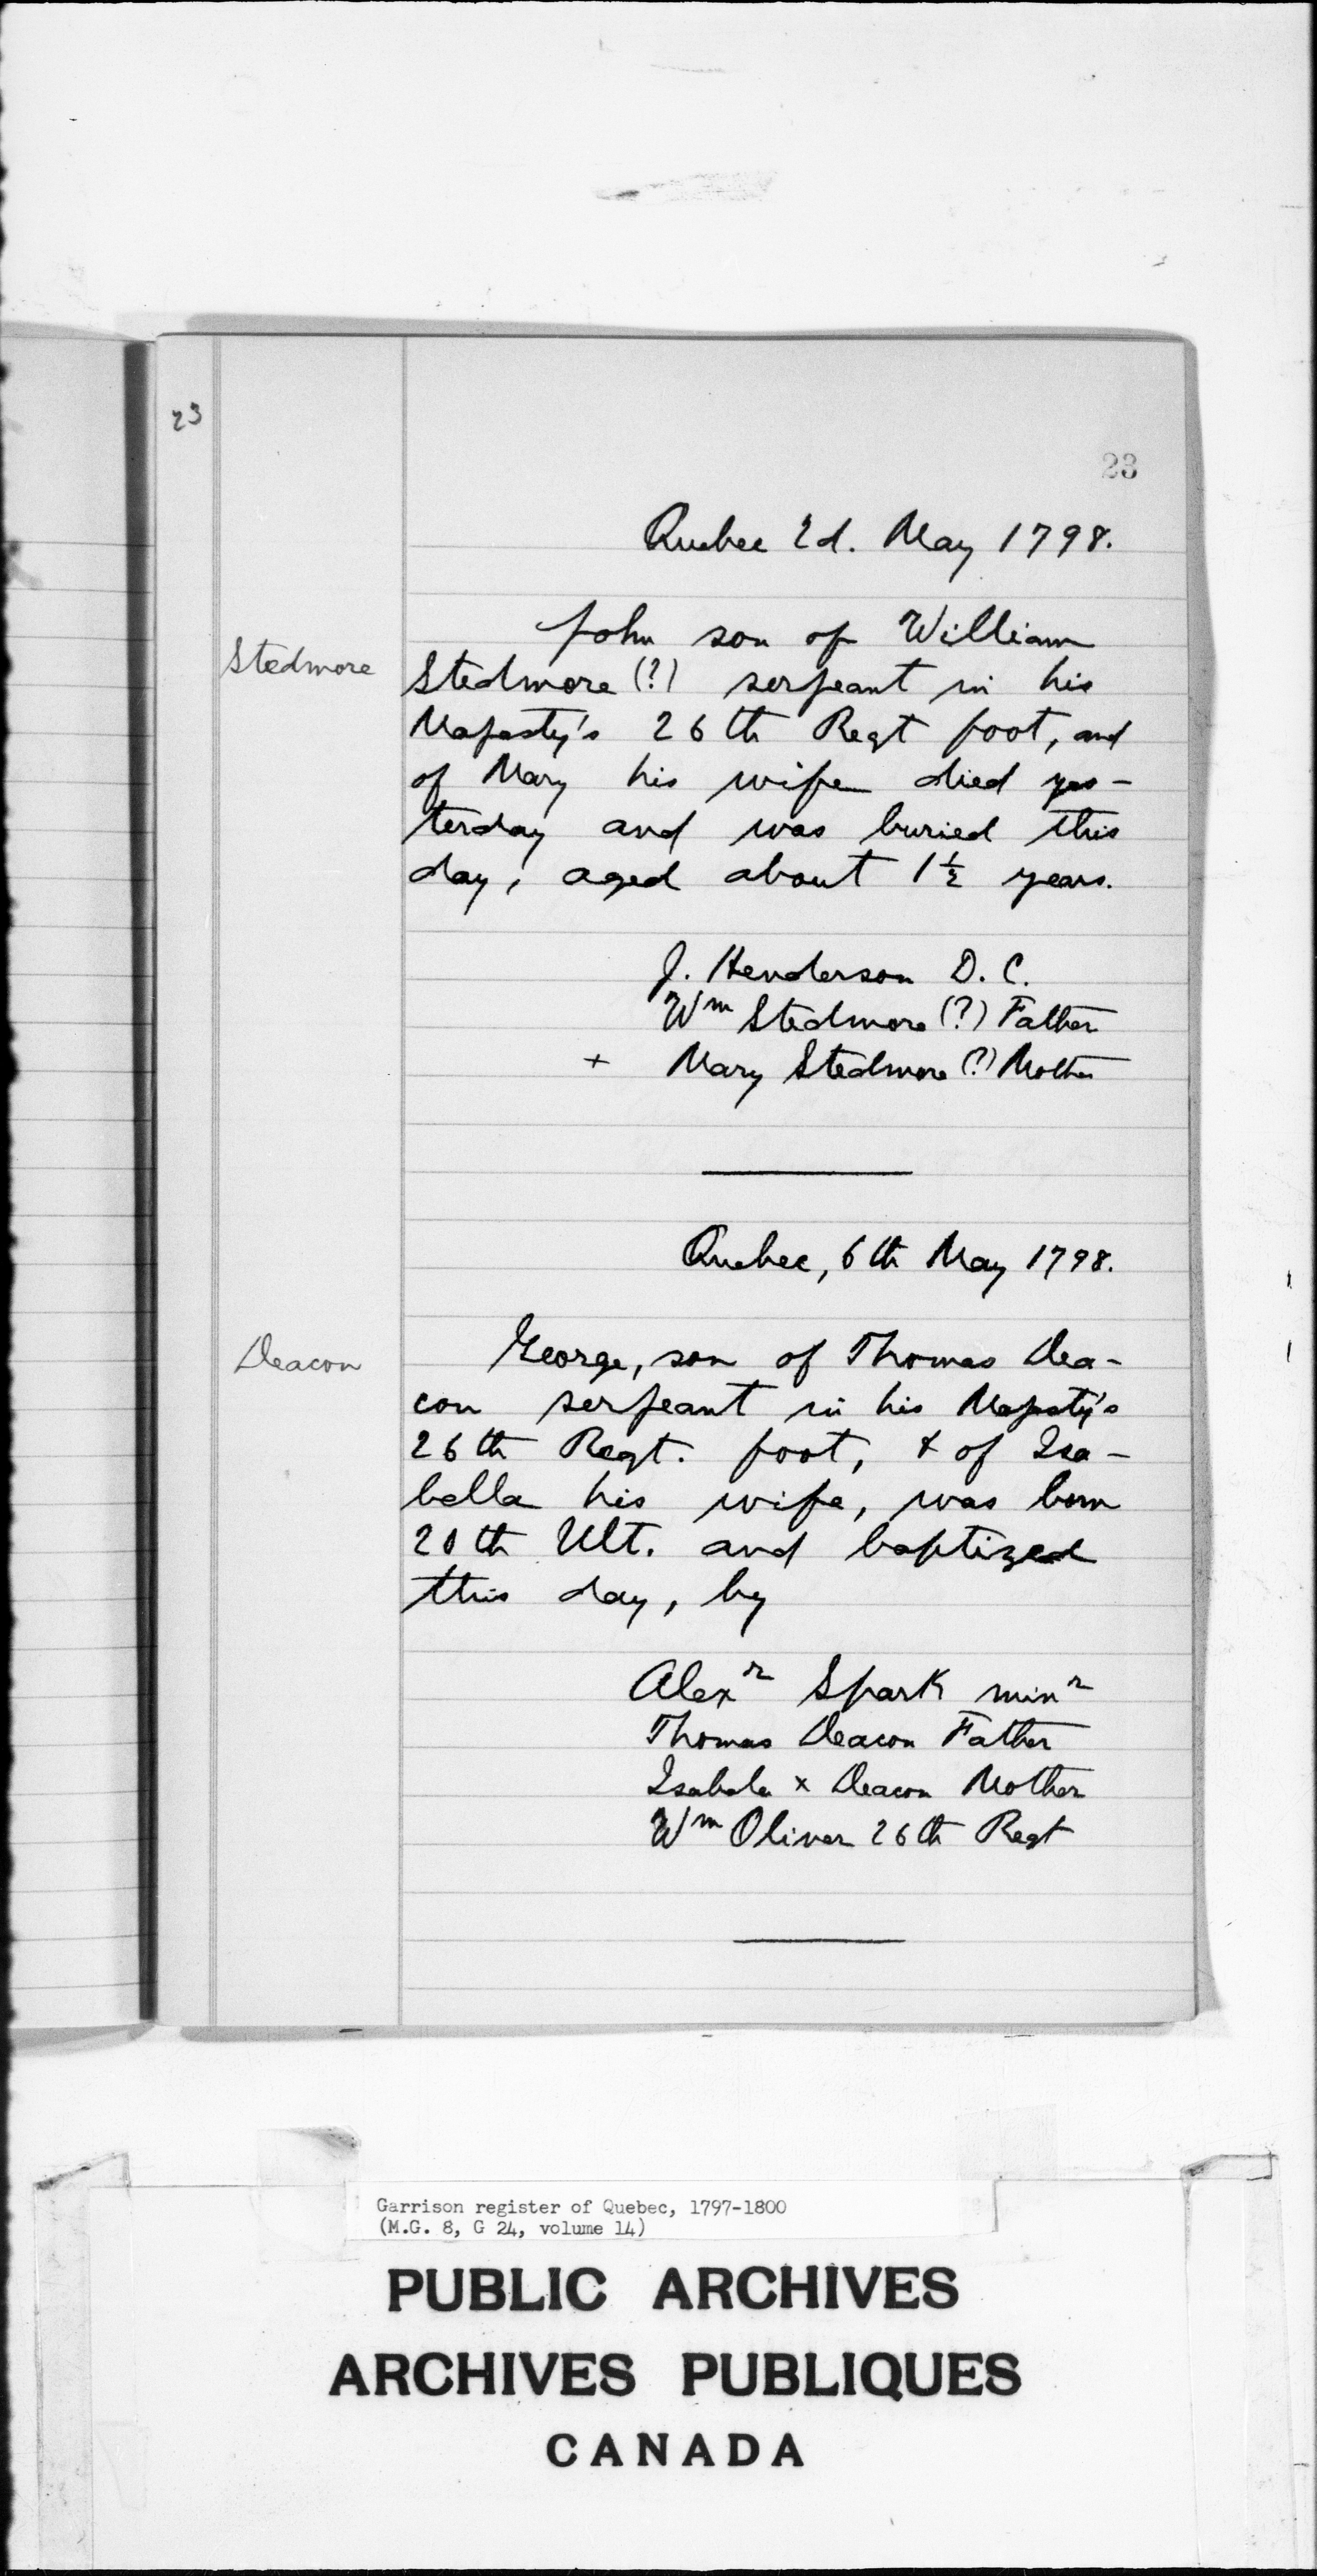 23
23
Quebec 2d. May 1798.
John son of William
Stedmore
Stedmore (?) serjeant in his
Majesty's 26th Regt foot, and
of Mary his wife died yes-
terday and was buried this
day, aged about 1½ years.
J. Henderson D. C.
Wm Stedmore (?) Father
+ Mary Stedmore (?) Mother
Quebec, 6th May 1798.
Deacon
George, son of Thomas Dea-
con serjeant in his Majesty's
26th Regt. foot, & of Isa-
bella his wife, was born
20th Ult. and baptized
this day, by
Alexr Spark minr
Thomas Deacon Father
Isabela x Deacon Mother
Wm Oliver 26th Regt
Garrison register of Quebec, 1797-1800
(M.G. 8, G 24, volume 14)
PUBLIC ARCHIVES
ARCHIVES PUBLIQUES
CANADA